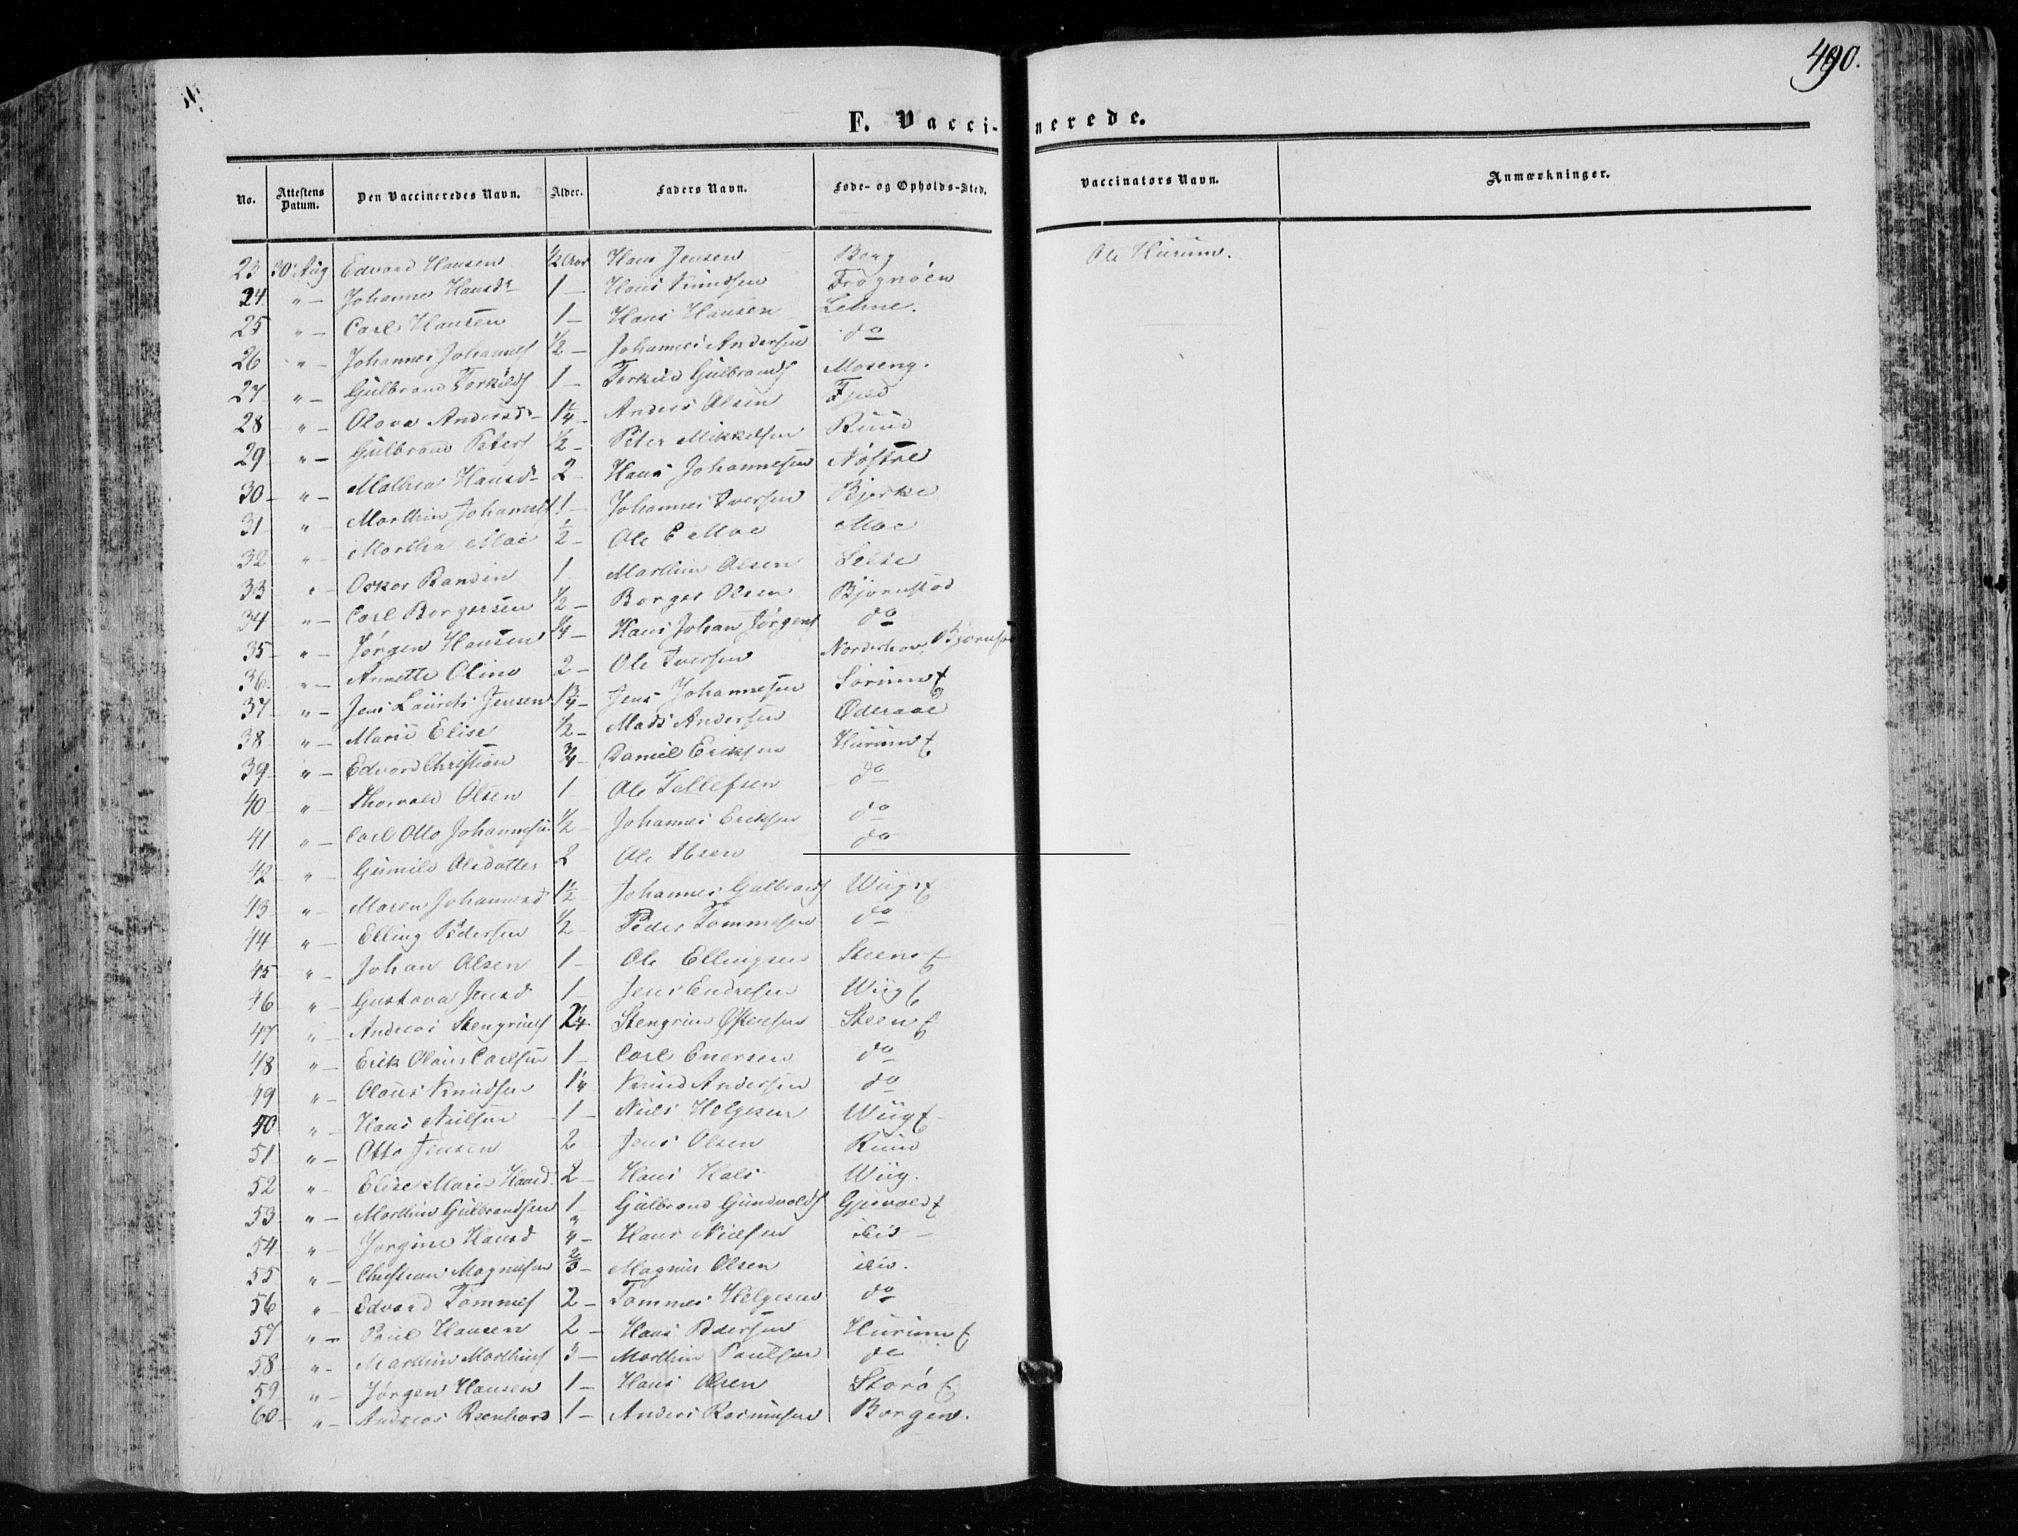 490.
F. Vaccinerede.
No. Attestens Datum. Den Vaccineredes Navn. Alder. Faders Navn. Føde- og Opholds-Sted. Vaccinators Navn. Anmærkninger.
23 30 Aug Edvard Hansen ½ Aar Hans Jensen Borg Ole Hurum.
24 " — Johanne Hansd 1 — Hans Knudsen Frognøen
25 " — Carl Hansen 1 — Hans Hansen Lehne.
26 " — Johannes Johannes ½ — Johannes Andersen do
27 " — Gulbrand Torkilds 1 — Torkild Gulbrands Moseng.
28 " — Olava Andersd 1¼ — Anders Olsen Fjeld
29 " — Gulbrand Peters ½ — Peter Mikkelsen Ruud
30 " — Mathea Hansd 2 — Hans Johannesen Nøstre
31 " — Marthin Johannes 1 — Johannes Iversen Bjerke
32 " Martha Moe ½ — Ole E Moe Moe
33 " — Oskar 1 Marthin Olsen
34 " — Carl Borgersen ½ — Borger Olsen Bjørnstad
35 " — Jørgen Hansen ¼ — Hans Johan Jørgens do
36 " — Annette Oline 2 — Ole Iversen Norderhov
37 " — Jens Laurits Jensen 1¾ — Jens Johannesen Sørum
38 " — Marie Elise ½ — Mads Andersen
39 " — Edvard Christian ¾ — Daniel Eriksen Hurum
40 " — Thorvald Olsen 1 Ole Tollefsen do
41 " — Carl Otto Johannesen ½ Johannes Eriksen do
42 " Gunild Olsdatter 2 Ole Ibsen do
43 " — Maren Johannesd 1½ Johannes Gulbrands Wiigs
44 " — Elling Pedersen ½ Peder Tommesen do
45 " — Johan Olsen 1 — Ole Ellingsen Steens
46 " — Gustava Jensd 1 — Jens Endresen Wiig
47 " — Andreas Stengrims 2¼ Stengrim Østensen Steen
48 " — Erik Olaus Carlsen 1 — Carl Enersen do
49 " — Olaus Knudsen 1¼ Knud Andersen do
50 " — Hans Nielsen 1 — Niels Helgesen Wiig
51 " — Otto Jensen 2 Jens Olsen Ruud
52 " — Elise Marie Hansd 2 — Hans Hals Wiig.
53 " — Marthin Gulbrandsen 1 Gulbrand Gundvalds Gjesvold
54 " — Jørgine Hansd — Hans Nielsen ibid
55 " — Christian Magnusen ⅔ — Magnus Olsen ibid.
56 " Edvard Tommes 2 — Tommes Helgesen do
57 " — Paul Hansen 2 — Hans Pedersen Hurum
58 " — Marthin Marthins 3 — Marthin Paulsen do
59 " — Jørgen Hansen 1 — Hans Olsen Storø
60 " — Andreas Reenhard 1 — Anders Rasmusen Borgen.